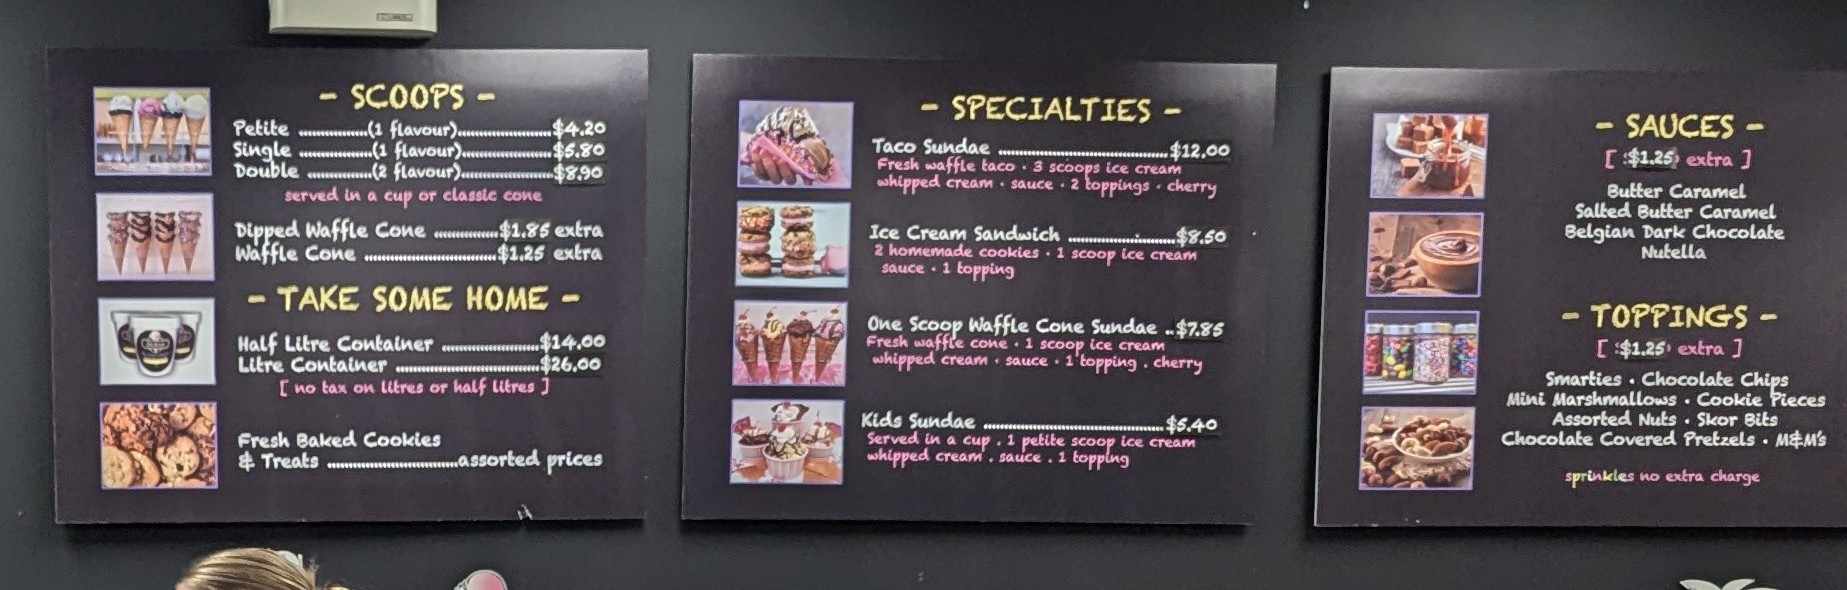 - SCOOPS -
Petite ................(1 flavour)......................$4.20
Single ................(1 flavour)......................$5.80
Double ................(2 flavour)......................$8.90
served in a cup or classic cone
Dipped Waffle Cone ...............$1.85 extra
Waffle Cone ...............................$1.25 extra
- TAKE SOME HOME -
Half Litre Container .......................$14.00
Litre Container ..................................$26.00
[ no tax on litres or half litres ]
Fresh Baked Cookies
& Treats ...............................assorted prices
- SPECIALTIES -
Taco Sundae .........................................$12.00
Fresh waffle taco · 3 scoops ice cream
whipped cream · sauce · 2 toppings · cherry
Ice Cream Sandwich .........................$8.50
2 homemade cookies · 1 scoop ice cream
sauce · 1 topping
One Scoop Waffle Cone Sundae ..$7.85
Fresh waffle cone · 1 scoop ice cream
whipped cream · sauce · 1 topping . cherry
Kids Sundae ...........................................$5.40
Served in a cup . 1 petite scoop ice cream
whipped cream . sauce . 1 topping
- SAUCES -
[ $1.25 extra ]
Butter Caramel
Salted Butter Caramel
Belgian Dark Chocolate
Nutella
- TOPPINGS -
[ $1.25 extra ]
Smarties · Chocolate Chips
Mini Marshmallows · Cookie Pieces
Assorted Nuts · Skor Bits
Chocolate Covered Pretzels · M&M's
sprinkles no extra charge